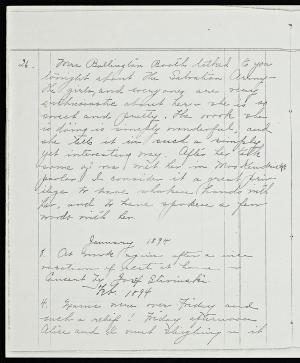 26. Mrs Ballington Booth talked to you
tonight about the Salvation Army -
the girls and everyone are very
enthusiastic about her - she is so
sweet and pretty. The work she
is doing is simply wonderful, and
she tells it in such a simple
yet interesting way. After her talk
some of us met her in Mrs
parlor. I consider it a great priv-
ilege to have shaken hands with
her, and to have spoken a few
words with her
January 1894
8. At work again after a nice
vacation of rest at home -
Concert by
Feb. 1894
4. Exams were over Friday and
such a relief! Friday afternoon
Alice and I went sleighing in it